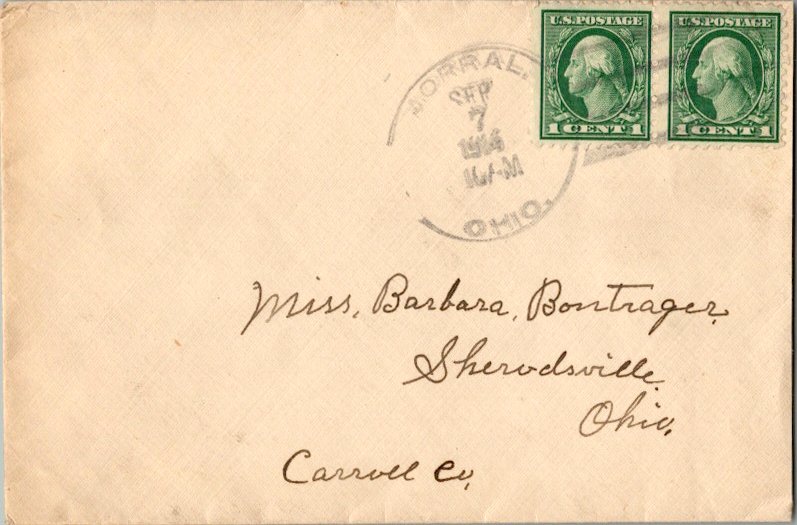 U.S.POSTAGE U.S.POSTAGE
1 CENT 1 1 CENT 1
MORRAL.
SEP
7
OHIO.
Miss, Barbara, Bontrager,
Sherodsville,
Ohio,
Carroll Co,